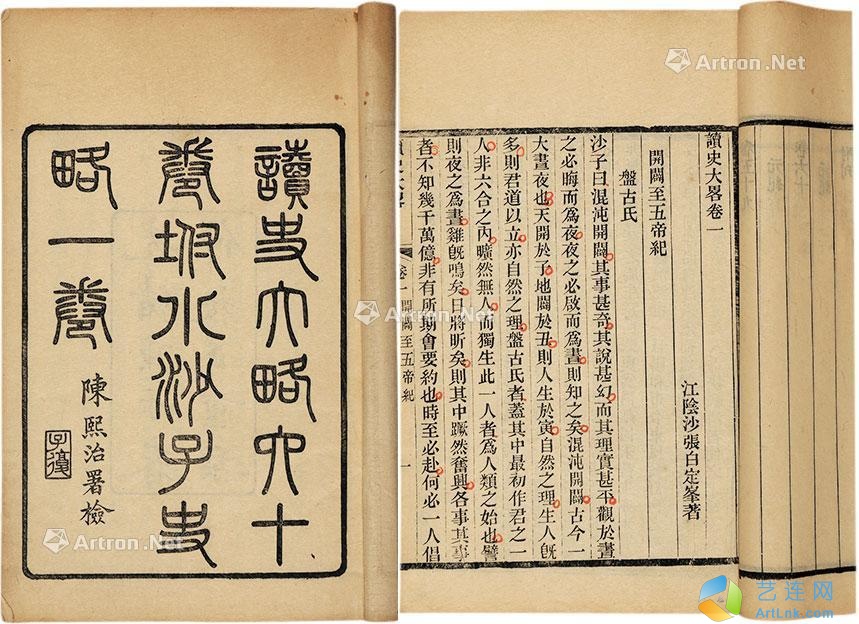 讀史大略六十
卷坿小沙子史
略一卷
陳熙治署檢
子復
讀史大畧卷一
江陰沙張白定峯著
開闢至五帝紀
盤古氏
沙子曰混沌開闢其事甚奇其說甚幻而其理實甚平觀於晝
之必晦而爲夜夜之必啟而爲晝則知之矣混沌開闢古今一
大晝夜也天開於子地闢於丑則人生於寅自然之理生人旣
多則君道以立亦自然之理盤古氏者蓋其中最初作君之一
人非六合之內曠然無人而獨生此一人者爲人類之始也譬
則夜之爲晝雞旣鳴矣日將昕矣則其中蹶然奮興各事其事
者不知幾千萬億非有所期會要約也時至必赴何必一人倡
卷一 開闢至五帝紀 一
Artron.Net
Artron.Net
Artron.Net
Artron.Net
Artron.Net
艺连网
ArtLnk.com